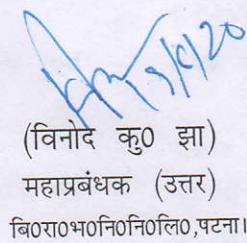 9/9/20
(विनोद कु0 झा)
महाप्रबंधक (उत्तर)
बि0रा0भ0नि0नि0लि0,पटना।